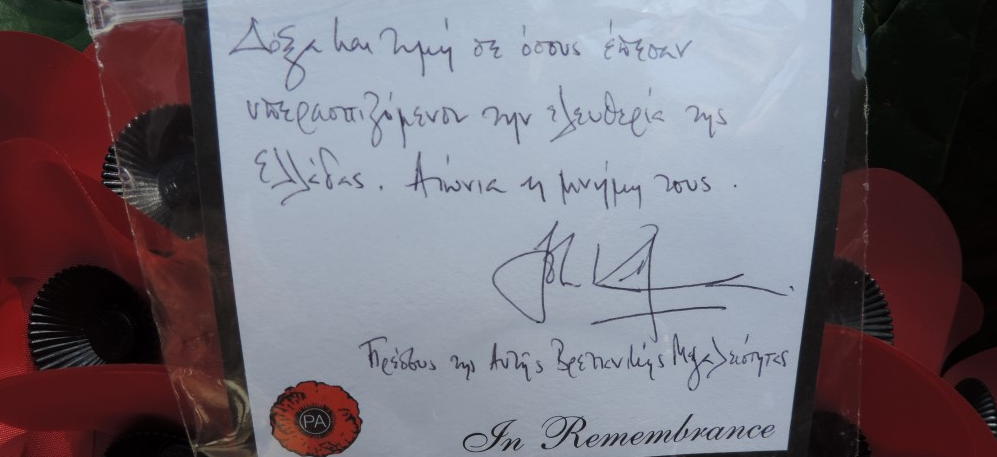 Δόξα και τιμή σε όσους έπεσαν
υπερασπιζόμενοι την ελευθερία της
Ελλάδας. Αιώνια η μνήμη τους.
Πρέσβυς της Αυτής Βρετανικής Μεγαλειότητας
PA
In Remembrance